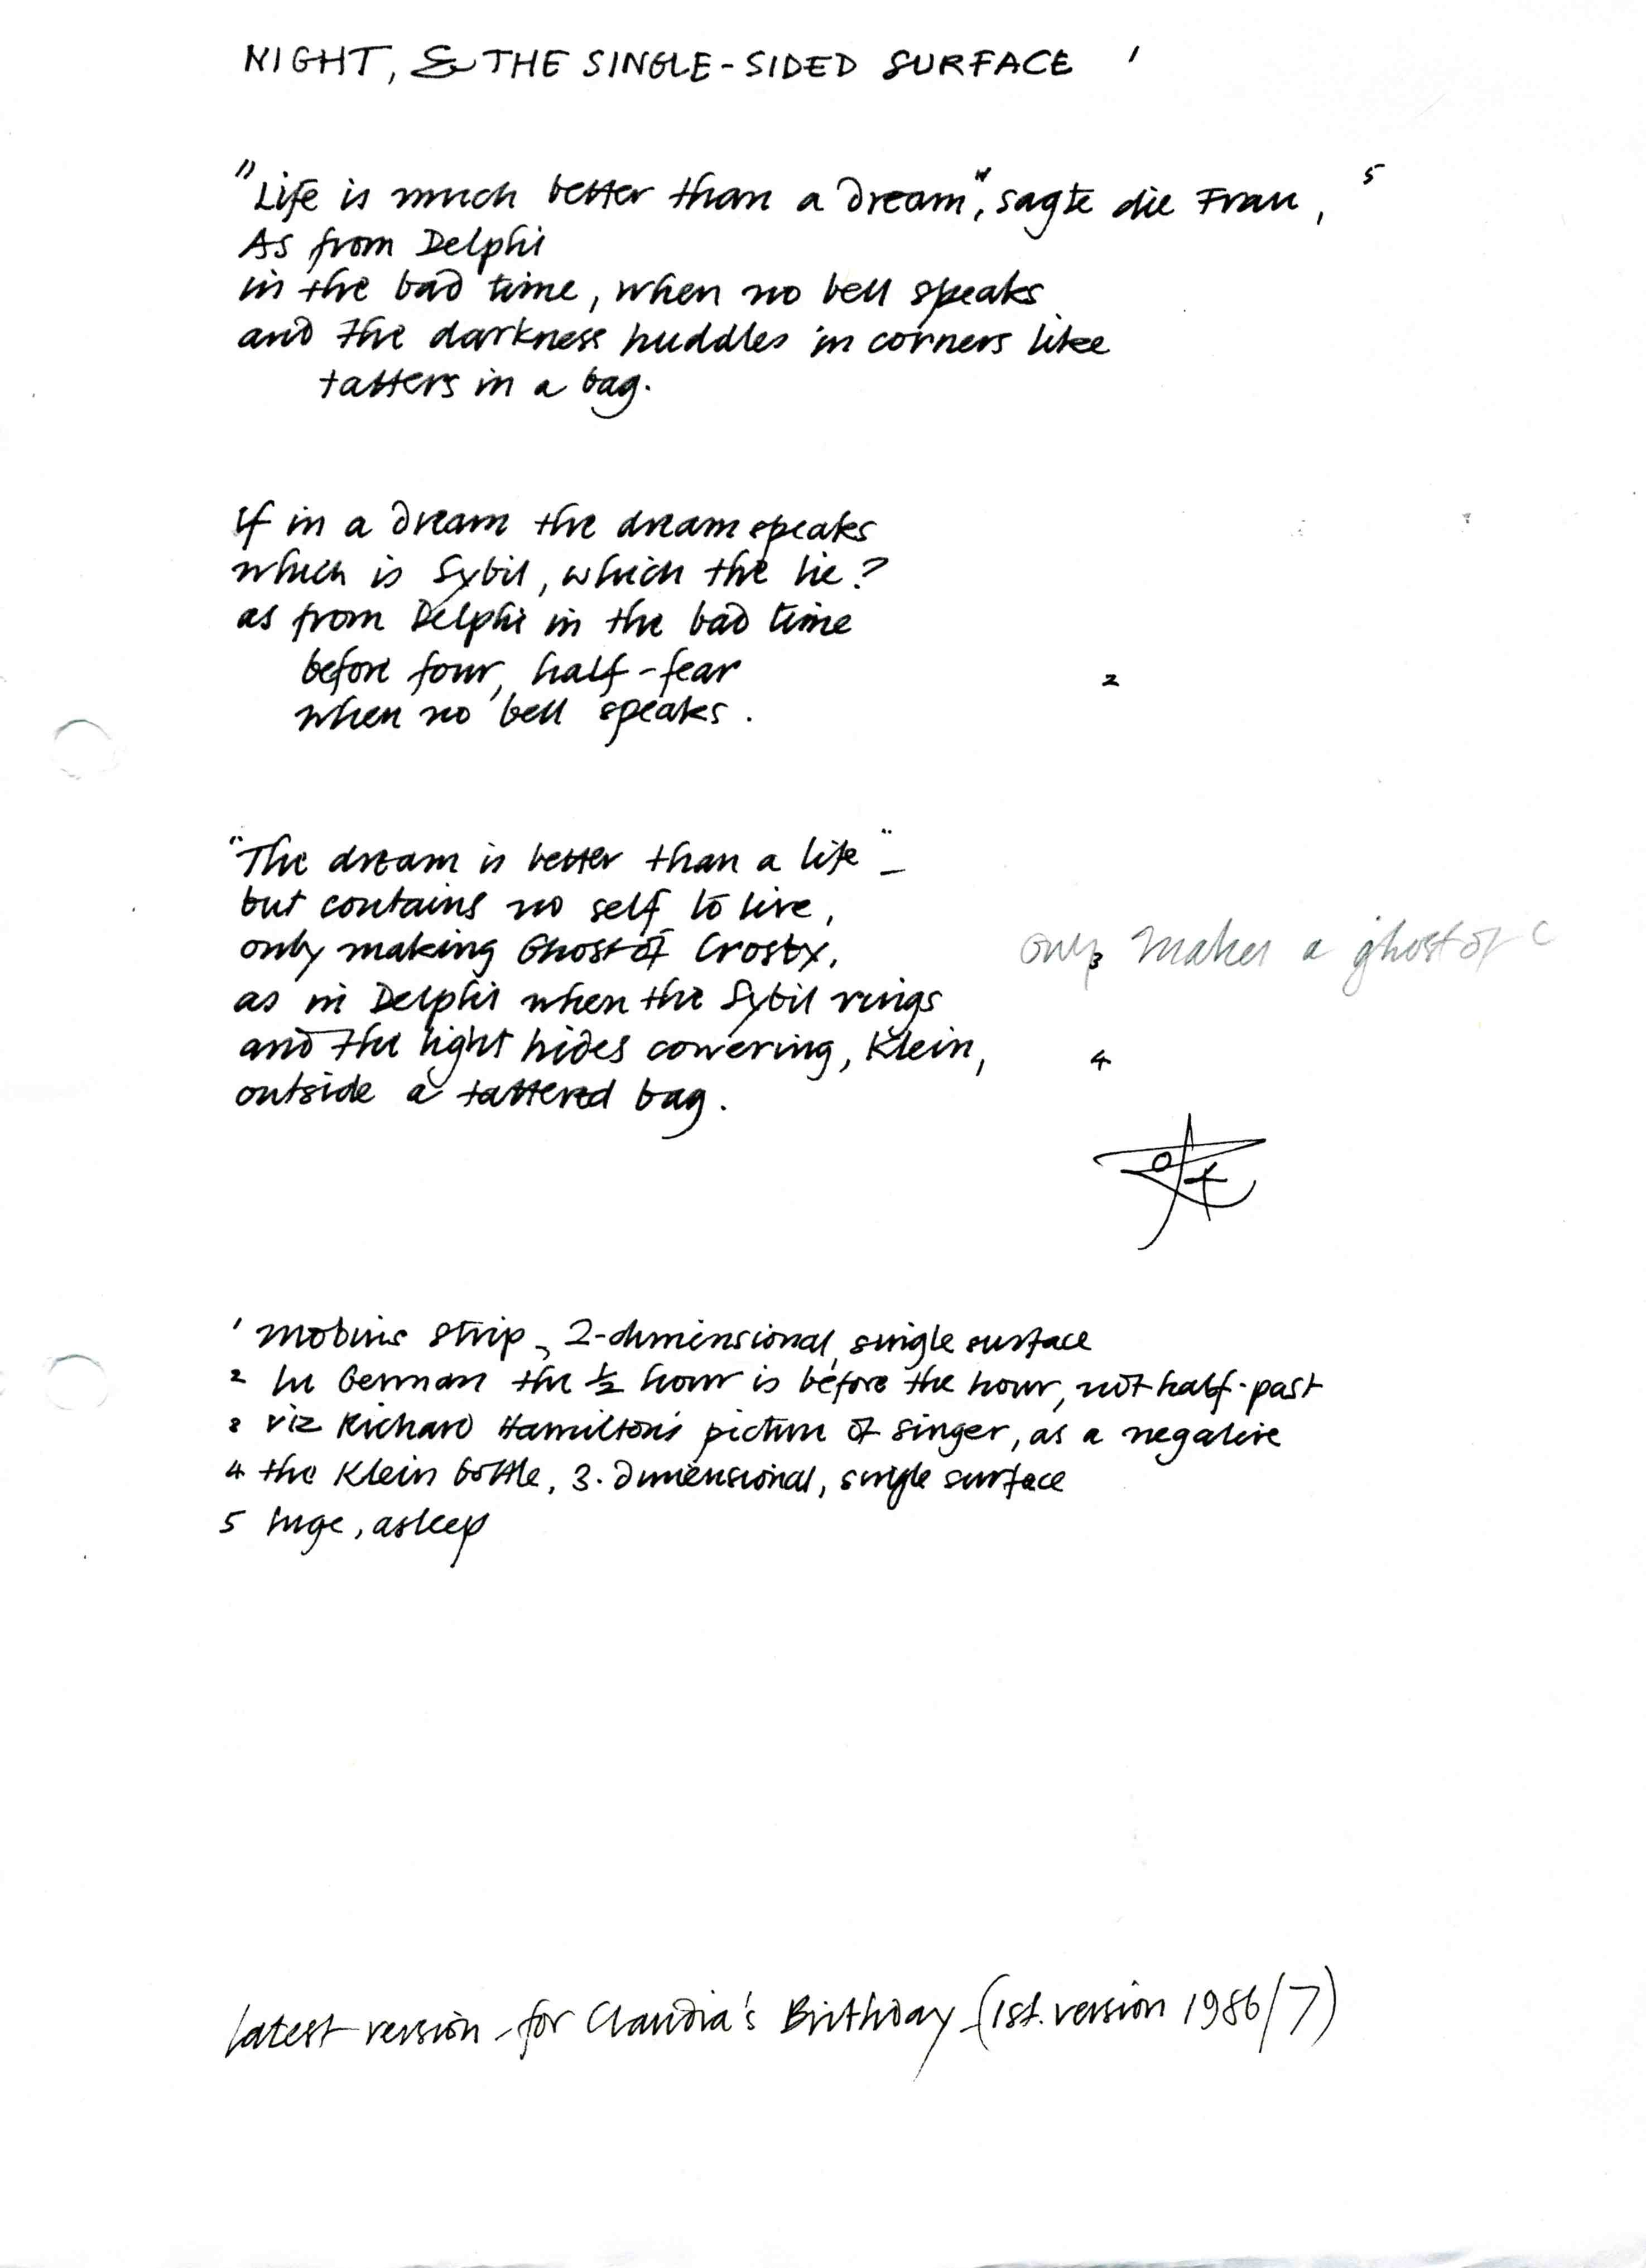 NIGHT, & THE SINGLE-SIDED SURFACE 1
"Life is much better than a dream", sagte die Frau, 5
As from Delphi
in the bad time, when no bell speaks
and the darkness huddles in corners like
tatters in a bag.
If in a dream the dream speaks
which is Sybil, which the lie?
as from Delphi in the bad time
before four, half-fear 2
when no bell speaks.
"The dream is better than a life" –
but contains no self to live,
only making Ghost of Crosby, 3
only makes a ghost of C
as in Delphi when the Sybil rings
and the light hides cowering, Klein, 4
outside a tattered bag.
1 Mobius strip, 2-dimensional, single surface
2 In German the ½ hour is before the hour, not half-past
3 viz Richard Hamilton's picture of singer, as a negative
4 the Klein bottle, 3-dimensional, single surface
5 huge, asleep
latest version – for Claudia's Birthday – (1st. version 1986/7)